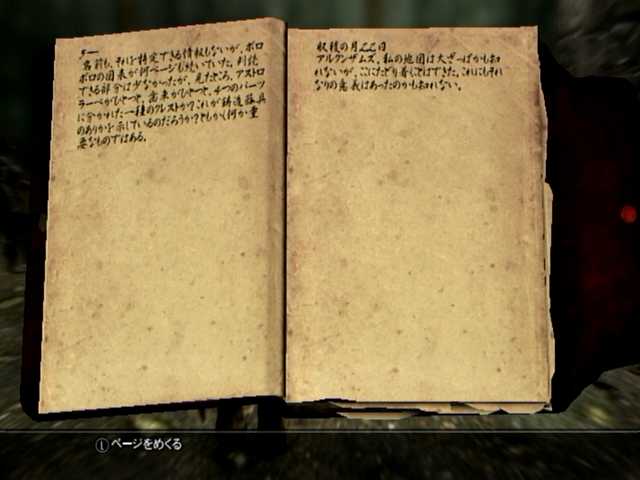 名前も、それを特定できる情報もないが、ボロ
ボロの図表が何ページも続いていた。判読
できる部分は少なかったが、見たところ、アストロ
ラーベがひとつ、がひとつ、4つのパーツ
に分かれた一種のクレストか？これが鋳造器具
のありかを示しているのだろうか？何か重
要なものではある。
収穫の月22日
アルクンザムズ。私の地図は大ざっぱかもし
れないが、ここにたどり着くことはできた。これにもそれ
なりの意義はあったのかもしれない。
Ⓛページをめくる